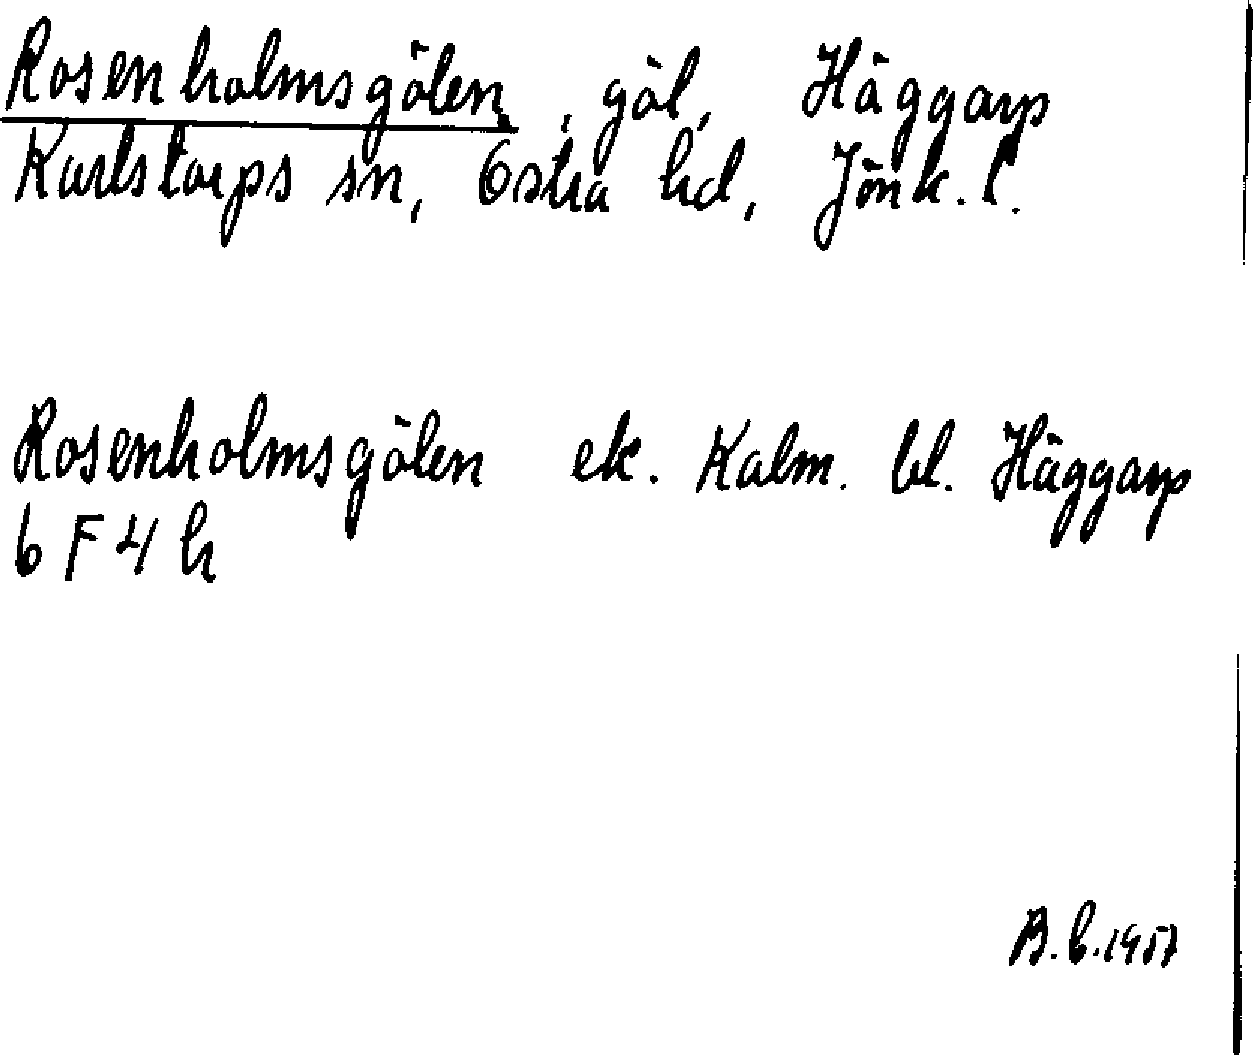 Rosenholmsgölen, göl, Häggarp
Karlstorps sn, Östra hd, Jönk. l.
Rosenholmsgölen ek. Kalm. bl. Häggarp
6 F 4 h
B.b.1957